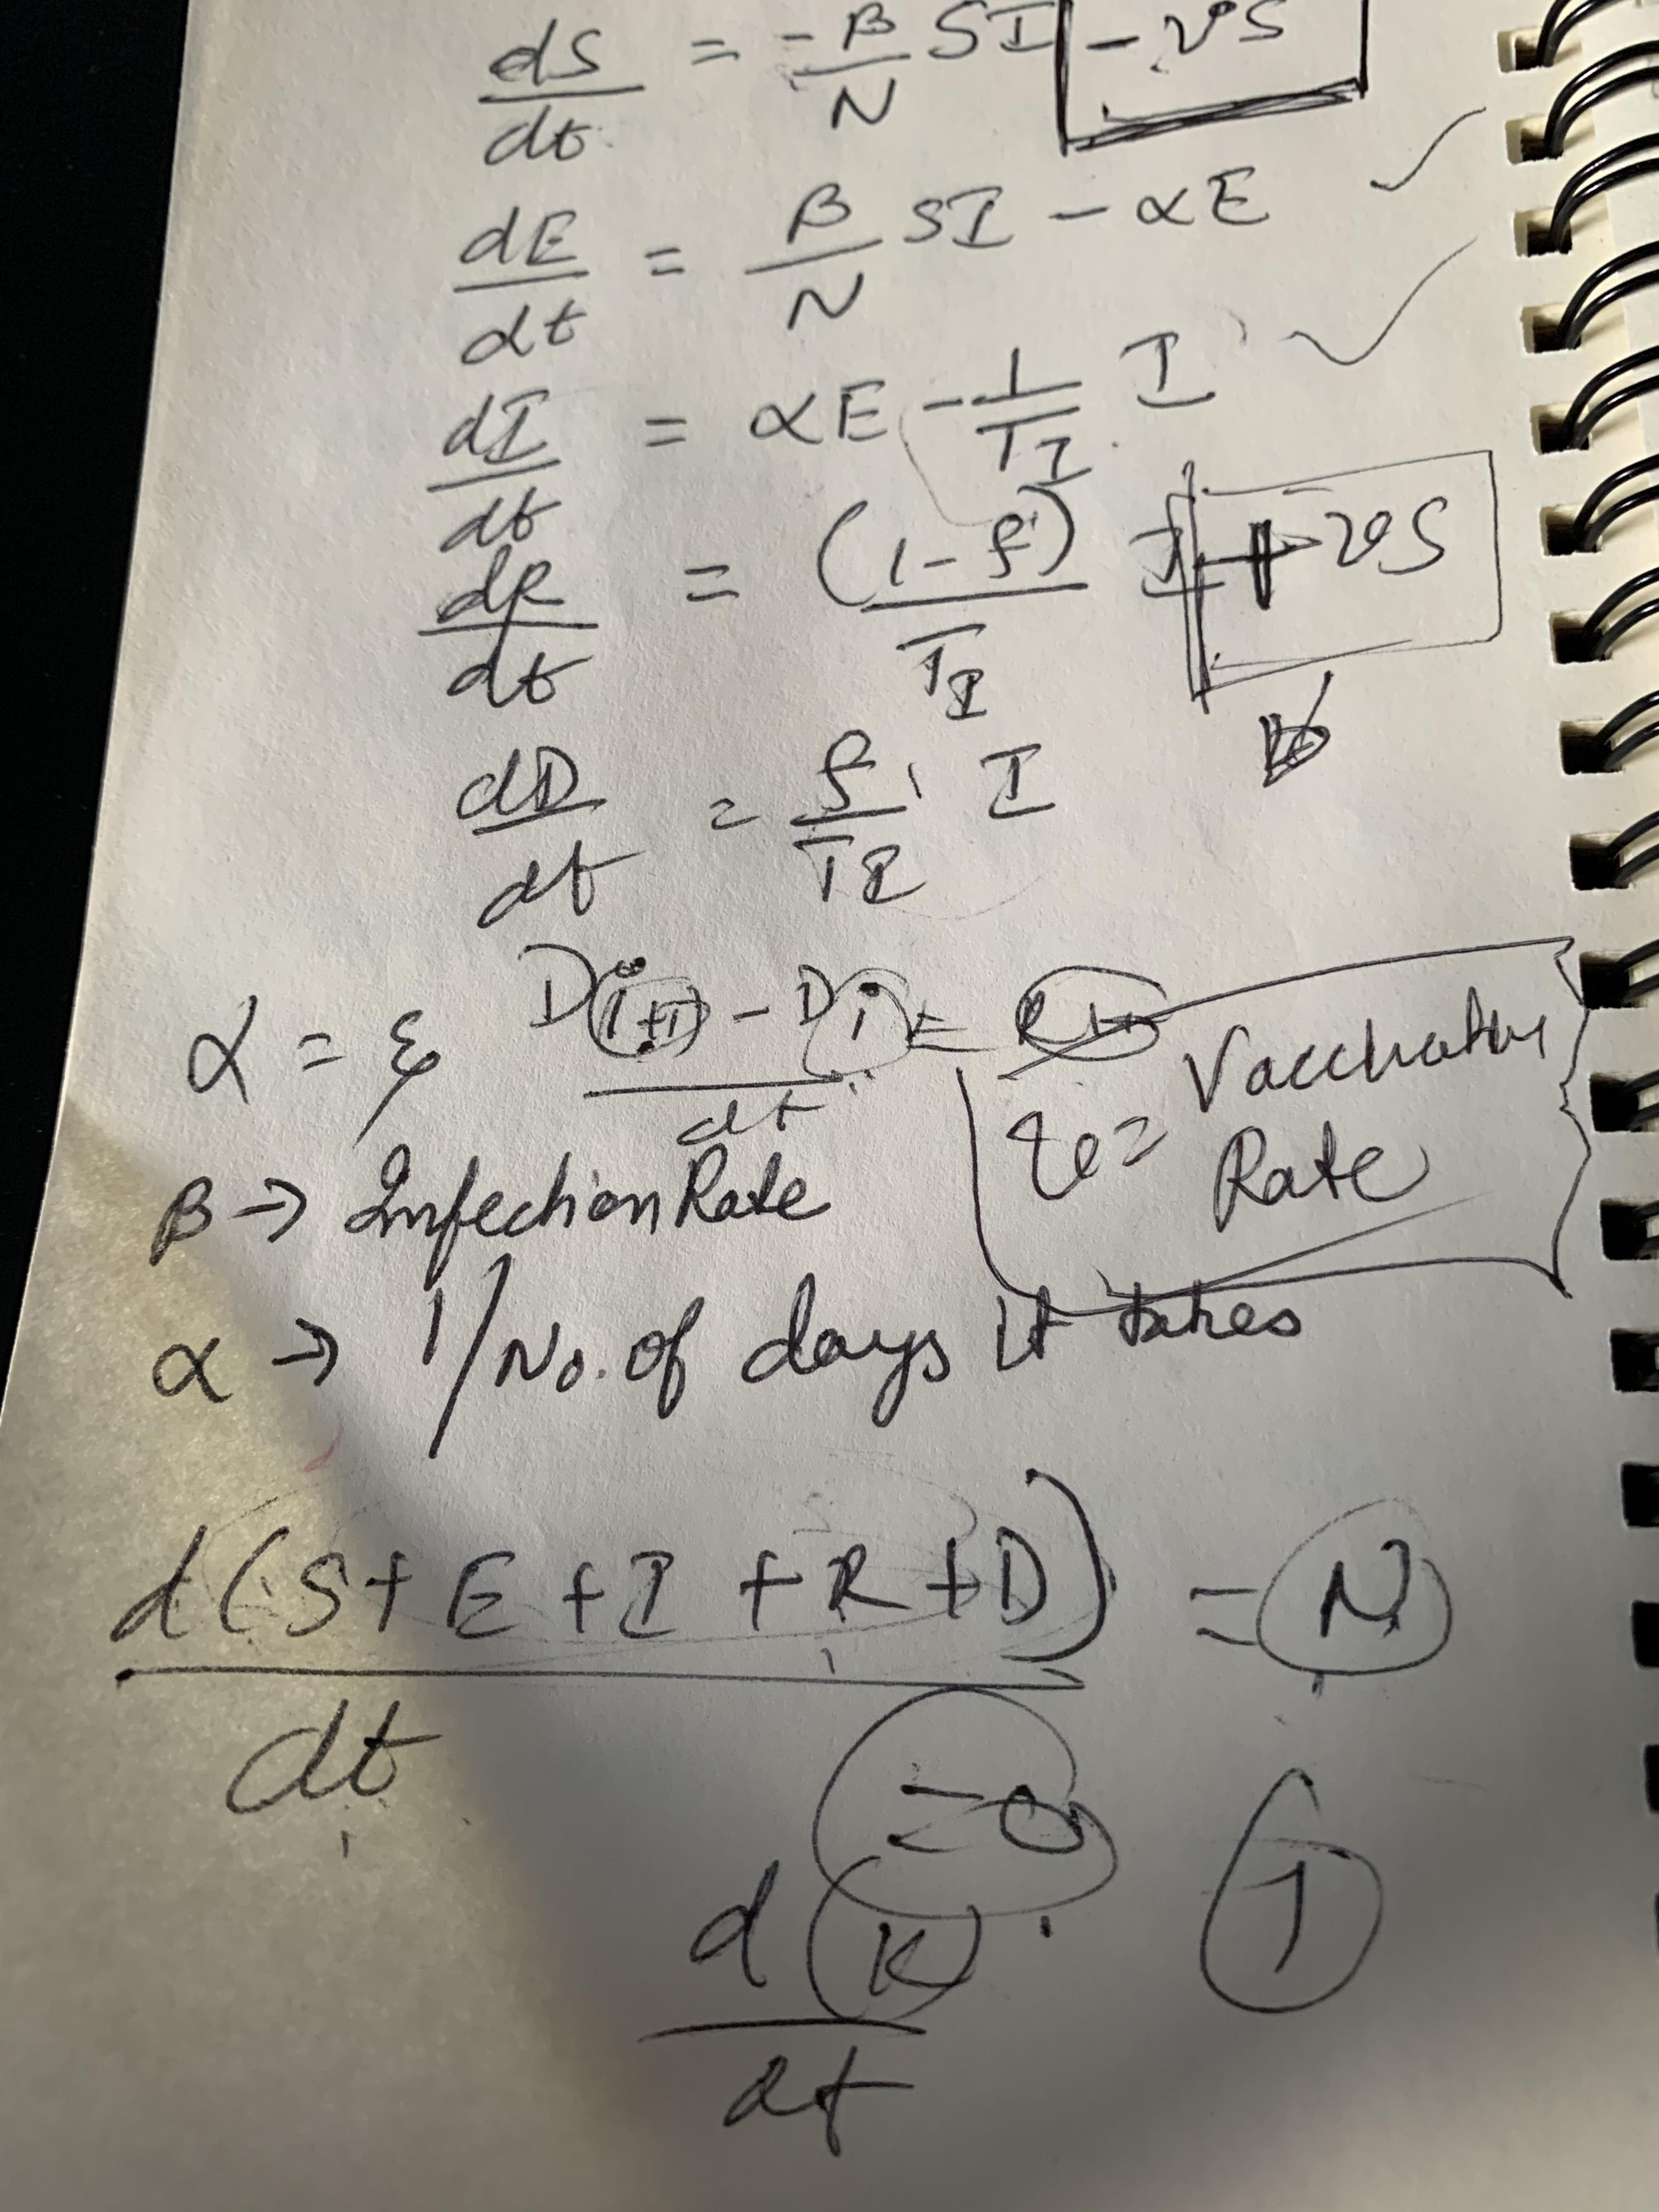 dS/dt = -β/N SI - vS
dE/dt = β/N SI - αE
dI/dt = αE - 1/T_I I
dR/dt = (1-f)/T_I I + vS
dD/dt = f/T_I I
α = ξ D(i+1) - D i / dt =
v = Vaccination Rate
β → Infection Rate
α → 1/No. of days it takes
d(S+E+I+R+D)/dt = N
=0
d(K)/dt
1